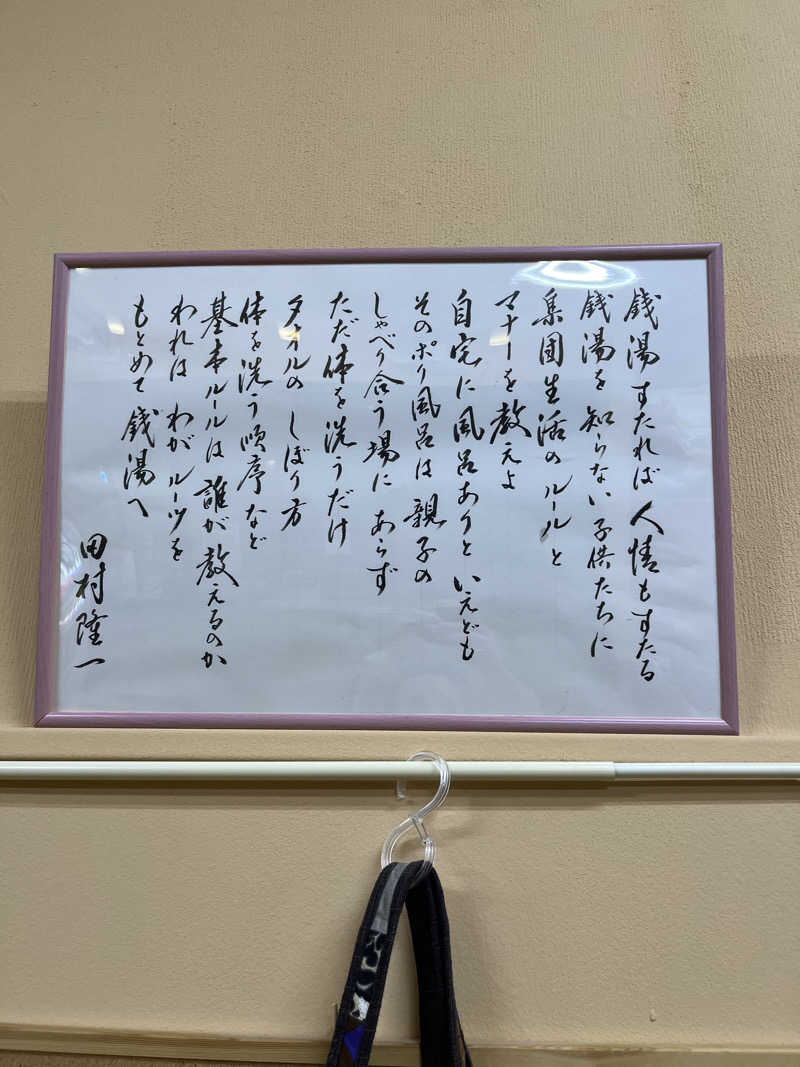 銭湯すたれば人情もすたる
銭湯を知らない子供たちに
集団生活のルールと
マナーを教えよ
自宅に風呂ありといえども
そのポリ風呂は親子の
しゃべり合う場にあらず
ただ体を洗うだけ
タオルのしぼり方
体を洗う順序など
基本ルールは誰が教えるのか
われはわがルーツを
もとめて銭湯へ
田村隆一